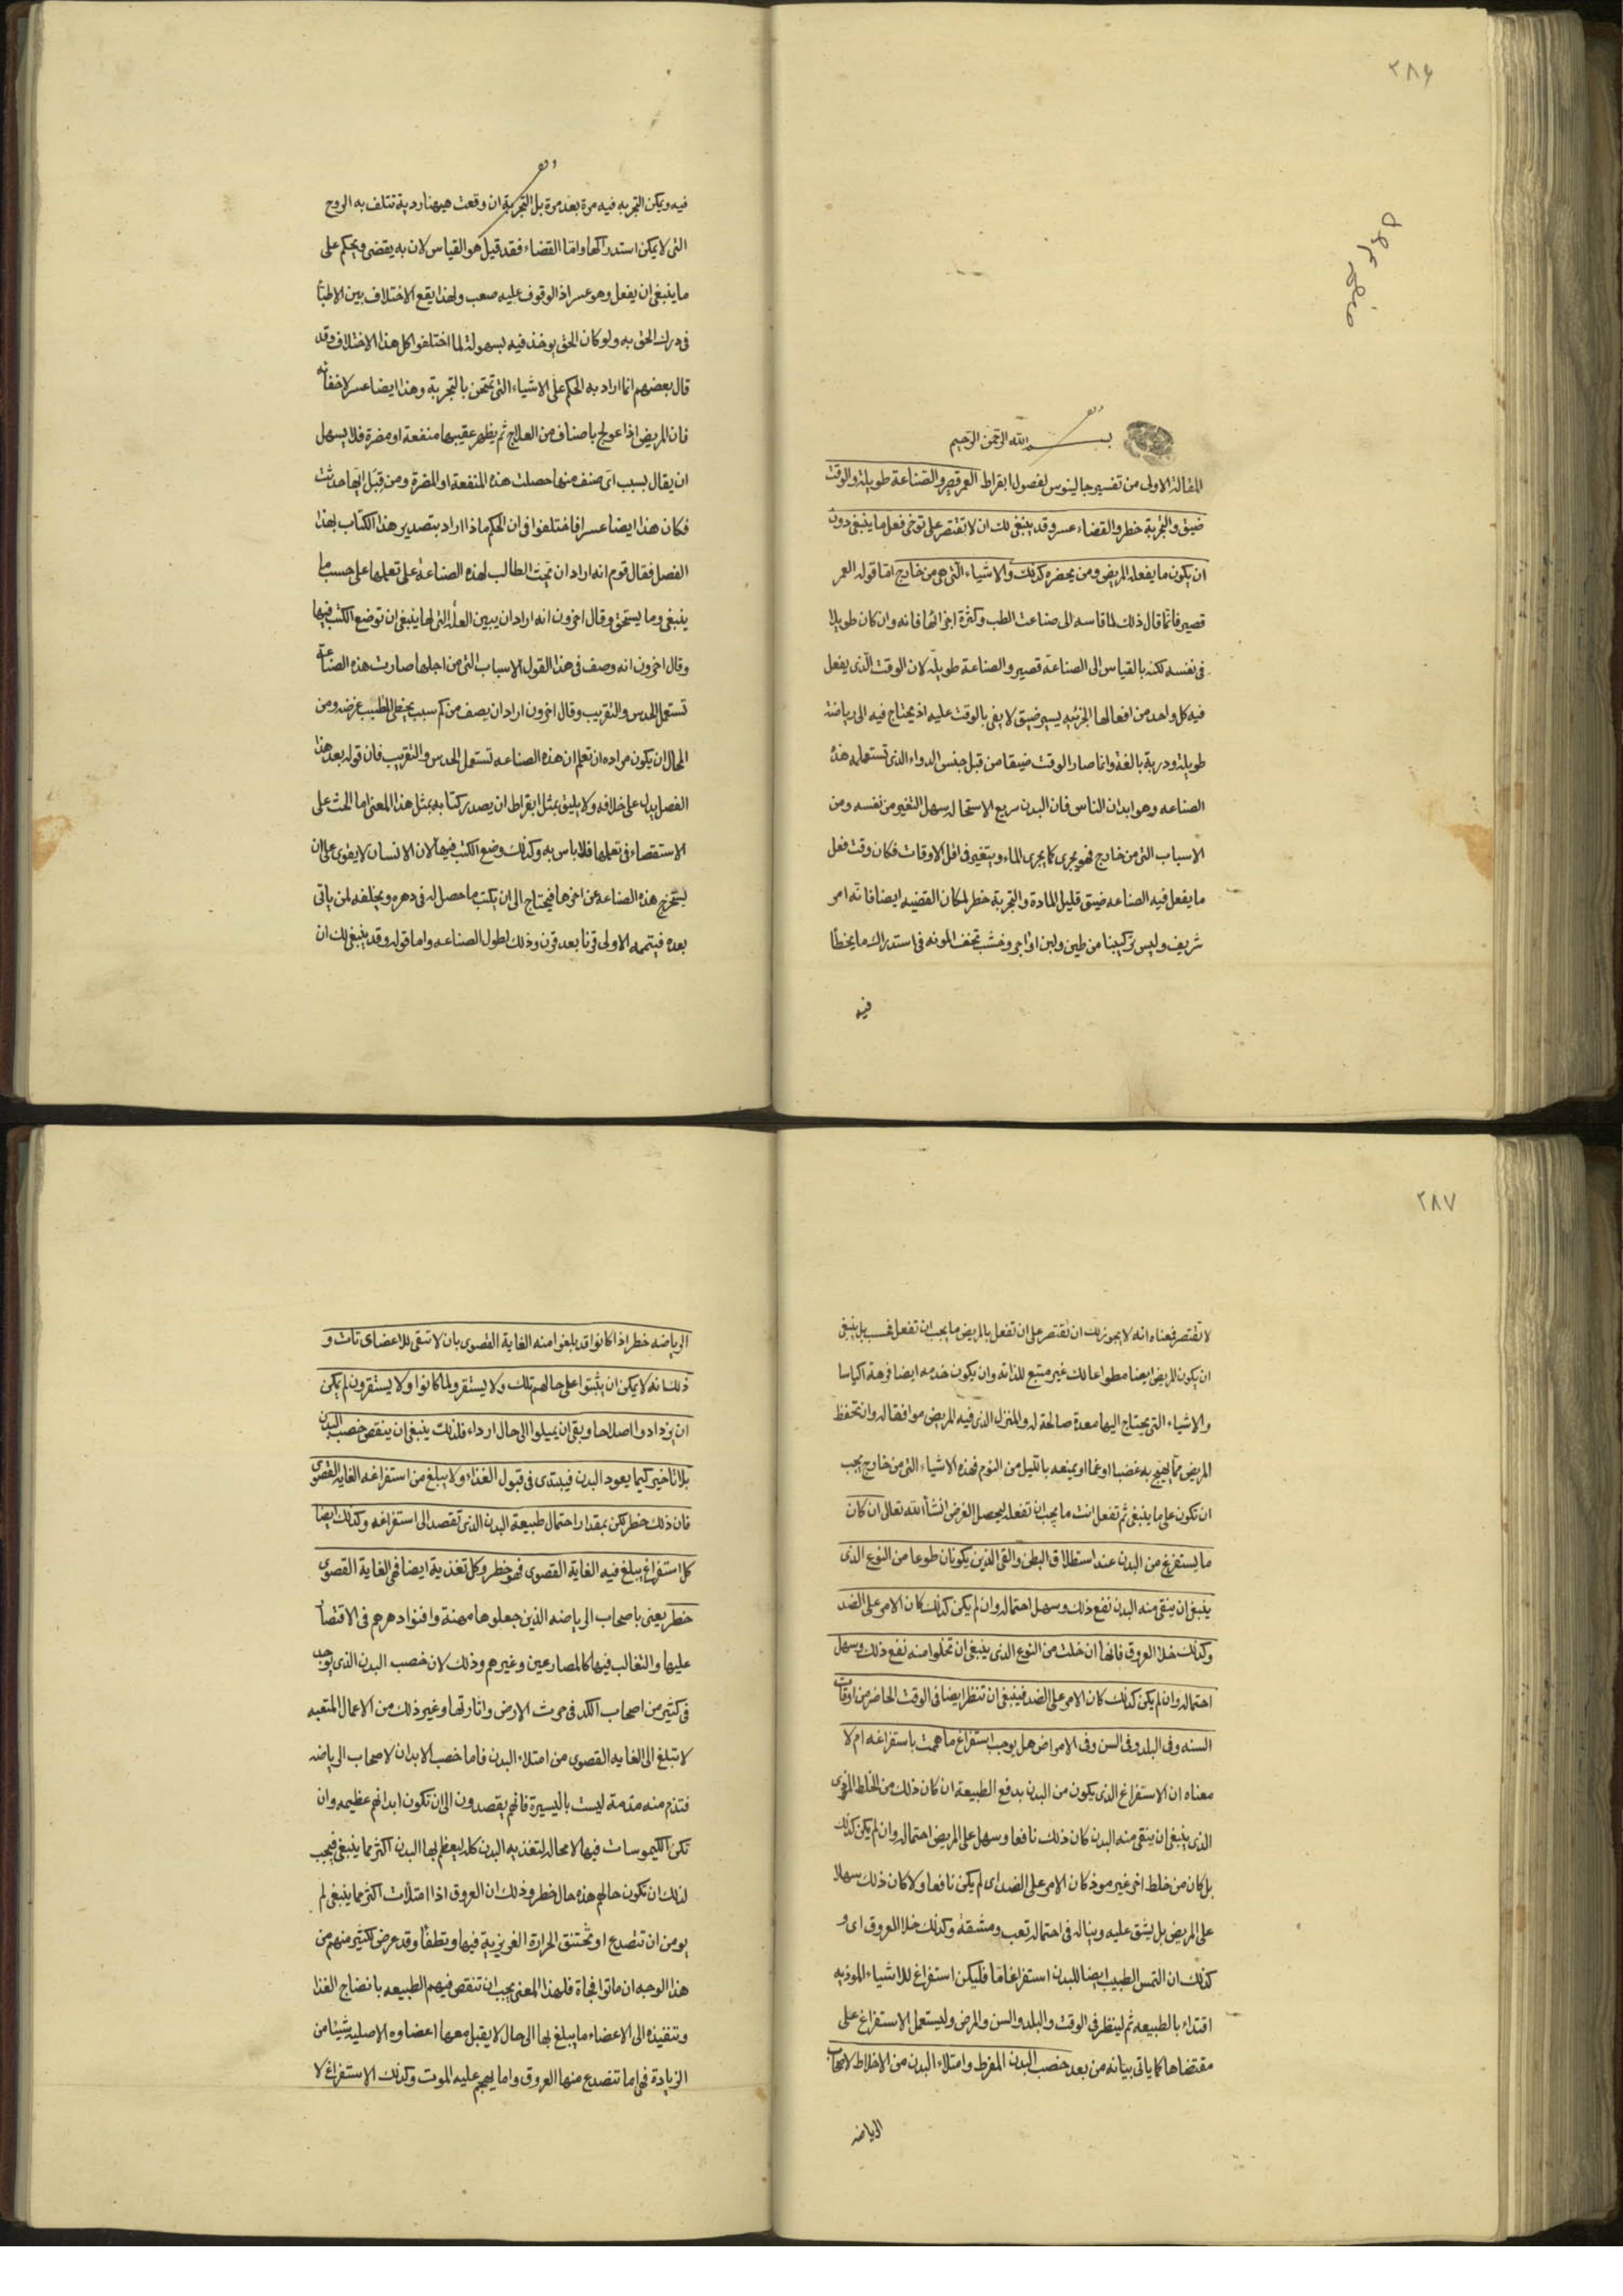 ٢٨٦
بسم الله الرحمن الرحيم
المقالة الاولى من تفسير جالينوس لفصول ابقراط العمر قصير والصناعة طويلة والوقت
ضيق والتجربة خطر والقضاء عسر وقد ينبغي لك ان لا تقتصر على توخى فعل ما ينبغي دون
ان يكون ما يفعله المريض ومن يحضره كذلك والاشياء التى هى من خارج اما قوله العمر
قصير فانما قال ذلك لما قاسه الى صناعت الطب وكثرة اجزائها فانه وان كان طويلا
فى نفسه لكنه بالقياس الى الصناعة قصير والصناعة طويلة لان الوقت الذى يفعل
فيه كل واحد من افعالها الجزئيه يسير ضيق لا يفى بالوقت عليه اذ يحتاج فيه الى رياضة
طويلة ودربة بالغة وانما صار الوقت ضيقا من قبل جنس الدواء الذى تستعمله هذه
الصناعه وهو ابدان الناس فان البدن سريع الاستحاله سهل التغير من نفسه ومن
الاسباب التى من خارج فهو يجرى كما يجرى الماء ويتغير فى اقل الاوقات فكان وقت فعل
ما يفعل فيه الصناعه ضيق قليل المادة والتجربة خطر لمكان القضيه ايضا فانه امر
شريف وليس تركيبنا من طين ولبن او اجر وخشب تخف المونه فى استدراك ما يخطا
فيه
فيه ويمكن التجربه فيه مرة بعد مرة بل التجربة ان وقعت هيهنا ردية تتلف به الروح
التى لا يمكن استدراكها واما القضاء فقد قيل هو القياس لان به يقضى ويحكم على
ما ينبغى ان يفعل وهو عسر اذ الوقوف عليه صعب ولهذا يقع الاختلاف بين الاطبا
فى درك الحق به ولو كان الحق يوخذ فيه بسهولة لما اختلفوا كل هذا الاختلاف وقد
قال بعضهم انما اراد به الحكم على الاشياء التى تمتحن بالتجربة وهذا ايضا عسر لاخفائه
فان المريض اذا عولج باصناف من العلاج ثم يظهر عقيبها منفعة او مضرة فلا يسهل
ان يقال بسبب اى صنف منها حصلت هذه المنفعة او المضرة ومن قبل ايها حدثت
فكان هذا ايضا عسرا فاختلفوا فى ان الحكم ماذا اراد بتصدير هذا الكتاب بهذا
الفصل فقال قوم انه اراد ان يحث الطالب لهذه الصناعة على تعلمها على حسب ما
ينبغى وما يستحق وقال اخرون انه اراد ان يبين العلة التى لها ينبغى ان توضع الكتب فيها
وقال اخرون انه وصف فى هذا القول الاسباب التى من اجلها صارت هذه الصناعة
تستعمل الحدس والتقريب وقال اخرون اراد ان يصف من كم سبب يخطى الطبيب غرضه ومن
المحال ان يكون مراده ان تعلم ان هذه الصناعه تستعمل الحدس والتقريب فان قوله بعد هذا
الفصل يدل على خلافه ولا يليق بمثل ابقراط ان يصدر كتابه بمثل هذا المعنى اما الحث على
الاستقصاء فى تعلمها فلا باس به وكذلك وضع الكتب فيها لان الانسان لا يقوى على ان
يستخرج هذه الصناعه عن اخرها فيحتاج الى ان يكتب ما حصل له فى دهره ويخلفه لمن ياتى
بعده فيتممه الاولى قرنا بعد قرن وذلك لطول الصناعه واما قوله وقد ينبغى لك ان
٢٨٧
لا تقتصر فمعناه انه لا يجوز لك ان تقتصر على ان تفعل بالمريض ما يجب ان تفعل فحسب بل ينبغى
ان يكون المريض ايضا مطواعا لك غير متبع للذاته وان يكون خدمه ايضا فرهة اكياسا
والاشياء التى يحتاج اليها معدة صالحة له والمنزل الذى فيه المريض موافقا له وان تحفظ
المريض مما يهيج به غضبا او غما او يمنعه بالليل من النوم فهذه الاشياء التى من خارج يجب
ان تكون على ما ينبغى ثم تفعل انت ما يجب ان تفعله ليحصل الغرض انشاء الله تعالى ان كان
ما يستفرغ من البدن عند استطلاق البطن والقى الذين يكونان طوعا من النوع الذى
ينبغى ان ينقى منه البدن نفع ذلك وسهل احتماله وان لم يكن كذلك كان الامر على الضد
وكذلك خلا العروق فانها ان خلت من النوع الذى ينبغى ان تخلوا منه نفع ذلك وسهل
احتماله وان لم يكن كذلك كان الامر على الضد فينبغى ان تنظر ايضا فى الوقت الحاضر من اوقات
السنه وفى البلد وفى السن وفى الامراض هل يوجب استفراغ ما هممت باستفراغه ام لا
معناه ان الاستفراغ الذى يكون من البدن بدفع الطبيعة ان كان ذلك من الخلط الموذى
الذى ينبغى ان ينقى منه البدن كان ذلك نافعا وسهل على المريض احتماله وان لم يكن كذلك
بل كان من خلط اخر غير موذ كان الامر على الضد اى لم يكن نافعا ولا كان ذلك سهلا
على المريض بل يشق عليه ويناله فى احتماله تعب ومشقة وكذلك خلا العروق اى و
كذلك ان التمس الطبيب ايضا للبدن استفراغا ما فليكن استفراغ للاشياء الموذيه
اقتداء بالطبيعه ثم لينظر فى الوقت والبلد والسن والمرض وليستعمل الاستفراغ على
مقتضاها كما ياتى بيانه من بعد خصب البدن المفرط وامتلاء البدن من الاخلاط لاصحاب
الرياضه
الرياضه خطر اذا كانوا قد بلغوا منه الغاية القصوى بان لا تبقى للاعضاى تات و
ذلك انه لا يمكن ان يثبتوا على حالهم تلك ولا يستقر ولما كانوا ولا يستقرون لم يكن
ان يزدادوا صلاحا وبقى ان يميلوا الى حال ارداء فلذلك ينبغى ان ينقص خصب البدن
بلا تاخير كيما يعود البدن فيبتدى فى قبول الغذاء ولا يبلغ من استفراغه الغاية القصوى
فان ذلك خطر لكن بمقدار احتمال طبيعة البدن الذى تقصد الى استفراغه وكذلك ايضا
كل استفراغ يبلغ فيه الغاية القصوى فهو خطر وكل تغذية ايضا فى الغاية القصوى
خطر يعنى باصحاب الرياضه الذين جعلوها مهنة وافنوا دهرهم فى الاقتضا
عليها والتغالب فيها كالمصارعين وغيرهم وذلك لان خصب البدن الذى يوجد
فى كثير من اصحاب الكد فى حرث الارض واثارتها وغير ذلك من الاعمال المتعبه
لا تبلغ الى الغايه القصوى من امتلاء البدن فاما خصب الابدان لاصحاب الرياضه
فتذم منه مذمة ليست باليسيرة فانهم يقصدون الى ان تكون ابدانهم عظيمه وان
تكن الكيموسات فيها لا محاله لتغذيه البدن كله ليعظم بها البدن اكثر مما ينبغى فيجب
لذلك ان تكون حالهم هذه حال خطر وذلك ان العروق اذا امتلات اكثر مما ينبغى لم
يومن ان تنصدع او تختنق الحرارة الغريزية فيها وتطفا وقد عرض لكثير منهم من
هذا الوجه ان ماتوا فجاة فلهذا المعنى يجب ان تنقص فيهم الطبيعه بانضاج الغذا
وتنفيذه الى الاعضاء ما يبلغ بها الى حال لا يقبل معها اعضاوه الاصليه شيئا من
الزيادة فهى اما تنصدع منها العروق واما يهجم عليه الموت وكذلك الاستفراغ لا